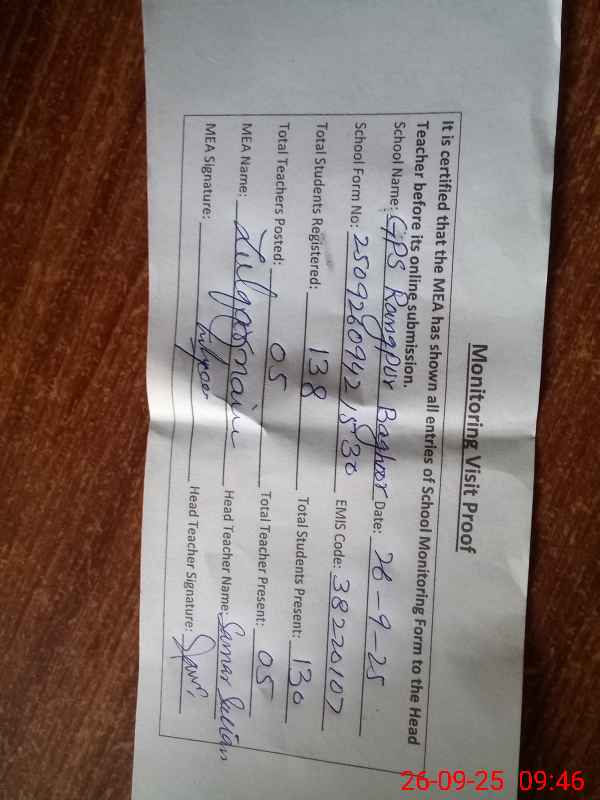 Monitoring Visit Proof
It is certified that the MEA has shown all entries of School Monitoring Form to the Head
Teacher before its online submission.
School Name: GPS Rangpur Baghoor Date: 26-9-25
School Form No: 250926094215730 EMIS Code: 38220107
Total Students Registered: 138 Total Students Present: 130
Total Teachers Posted: 05 Total Teacher Present: 05
MEA Name: Head Teacher Name: Samar
MEA Signature: Head Teacher Signature:
26-09-25 09:46